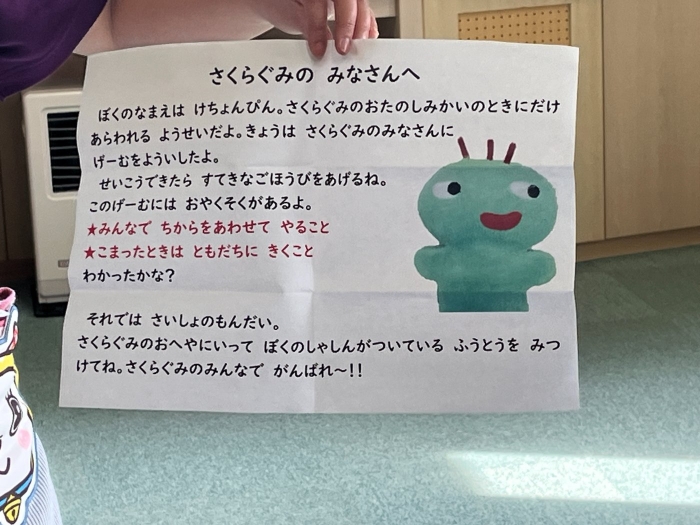 さくらぐみの みなさんへ
ぼくのなまえは けちょんぴん。さくらぐみのおたのしみかいのときにだけ
あらわれる ようせいだよ。きょうは さくらぐみのみなさんに
げーむをよういしたよ。
せいこうできたら すてきなごほうびをあげるね。
このげーむには おやくそくがあるよ。
★みんなで ちからをあわせて やること
★こまったときは ともだちに きくこと
わかったかな?
それでは さいしょのもんだい。
さくらぐみのおへやにいって ぼくのしゃしんがついている ふうとうを みつ
けてね。さくらぐみのみんなで がんばれ～!!